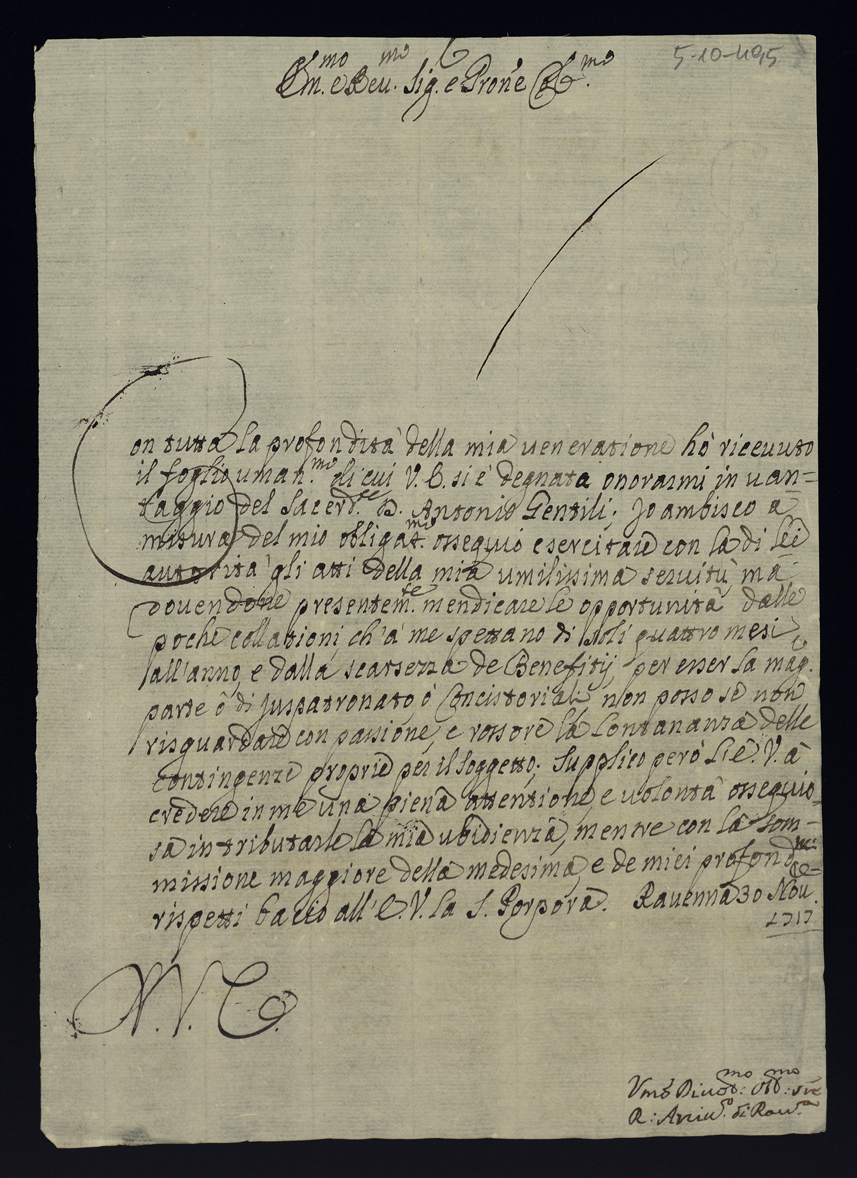 5-10-495
Em.mo e Reu.mo Sig. e Prone Col.mo
Con tutta la profondità della mia veneratione hò riceuuto
il foglio uman.mo di cui V. E. si è degnata onorarmi in uan=
taggio del Sacerd.te D. Antonio Gentili. Io ambisco à
misura del mio obligat.mo ossequio esercitare con la di lei
autorità gli atti della mia umilissima seruitù, mà
douendone presentem.te mendicare le opportunità dalle
poche collationi, ch'à me spettano di soli quattro mesi
all'anno, e dalla scarsezza de Benefitij, per esser la mag.
parte ò di Juspatronato ò Concistoriali, non posso se non
risguardare con passione, e rossore la lontananza delle
contingenze proprie per il soggetto. Supplico però l'E. V. à
credere in me una piena attentione, e uolontà ossequio=
sa in tributarle la mia ubidienza, mentre con la som=
missione maggiore della medesima, e de miei profond.mi
rispetti bacio all'E. V. la S. Porpora. Rauenna 30 Nou.
1717
V. E.
Vmo Diuot.mo: Obb.mo: Ser
R: Arciu.o di Rau.a